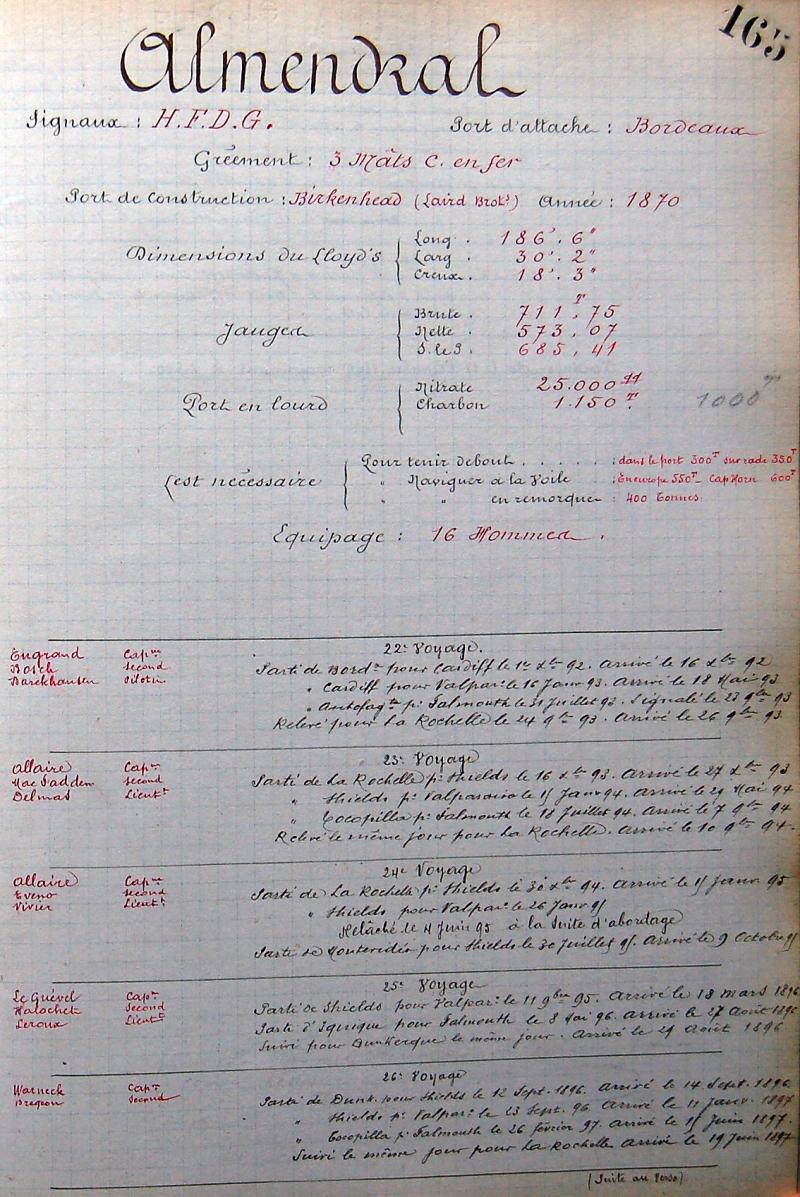 165
Almendral
Signaux : H.F.D.G. Port d'attache : Bordeaux
Gréement : 3 Mâts C. en fer
Port de Construction : Birkenhead (Laird Brots) Année : 1870
Dimensions du Lloyd's
Long. 186'. 6"
Larg. 30'. 2"
Creux. 18'. 3"
Jauges
Brute. 711T,75
Nette. 573,07
S. le P. 685,41
Port en lourd
Nitrate 25.000 qq
Charbon 1.150 T. 1000 T
Lest nécessaire
Pour tenir debout . . . . . : dans le port 300T sur rade 350T
" Naviguer à la Voile : En europe 550T_ Cap Horn 600T
" " en remorque : 400 Tonnes.
Equipage : 16 Hommes.
22e Voyage.
Engrand Capne
Bosch Second
Barckhausen Pilotin
Parti de Bordx pour Cardiff le 1er Xbre 92. Arrivé le 16 Xbre 92
" Cardiff pour Valparo le 16 Janv 93. Arrivé le 18 Mai 93
" Antofagta pr Falmouth le 31 Juillet 93. Signalé le 23 9bre 93
Relevé pour La Rochelle le 24 9bre 93. Arrivé le 26 9bre 93
23e Voyage
Allaire Capne
Mac Fadden Second
Delmas Lieutt
Parti de La Rochelle pr Shields le 16 Xbre 93. Arrivé le 27 Xbre 93
" Shields pr Valparaiso le 15 Janv 94. Arrivé le 29 Mai 94
" Tocopilla pr Falmouth le 18 Juillet 94. Arrivé le 7 9bre 94
Relevé le même jour pour La Rochelle. Arrivé le 10 9bre 94.
24e Voyage
Allaire Capne
Eveno Second
Vivier Lieutt
Parti de La Rochelle pr Shields le 30 Xbre 94. Arrivé le 15 Janv. 95
" Shields pour Valparo le 26 Janv 95
Relâché le 4 Juin 95 à la Suite d'abordage
Parti de Montevideo pour Shields le 30 Juillet 95. Arrivé le 9 Octobre 95
25e Voyage
Le Guével Capne
Halochet Second
Leroux Lieutt
Parti de Shields pour Valparo le 11 9bre 95. Arrivé le 18 mars 1896
Parti d'Iquique pour Falmouth le 8 Mai 96. Arrivé le 27 Août 1896
Suivi pour Dunkerque le même jour. Arrivé le 29 Août 1896
26e Voyage
Warneck Capne
Bregeon Second
Parti de Dunk. pour Shields le 12 Sept. 1896. Arrivé le 14 Sept. 1896
" Shields pr Valparo le 23 Sept. 96 Arrivé le 11 Janv. 1897
" Tocopilla pr Falmouth le 26 février 97. Arrivé le 15 Juin 1897.
Suivi le même jour pour La Rochelle Arrivé le 19 Juin 1897
(Suite au Verso)